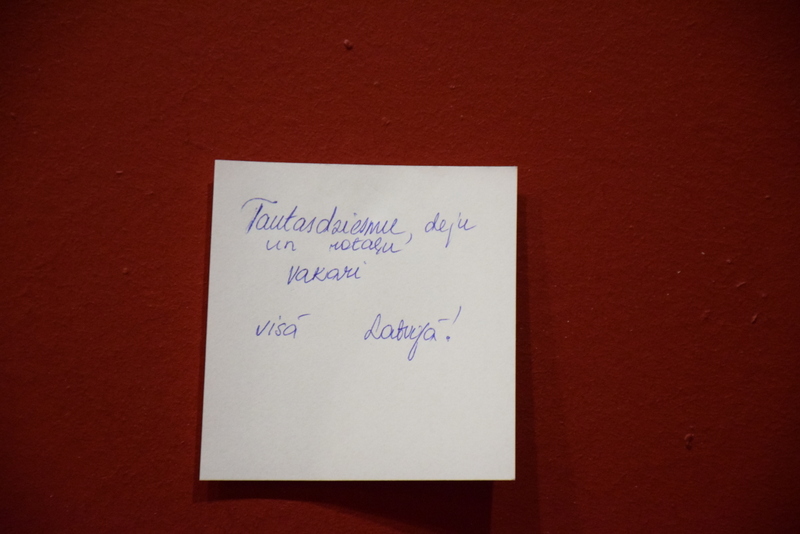 Tautasdziesmu, deju
un rotaļu
vakari
visā Latvijā!